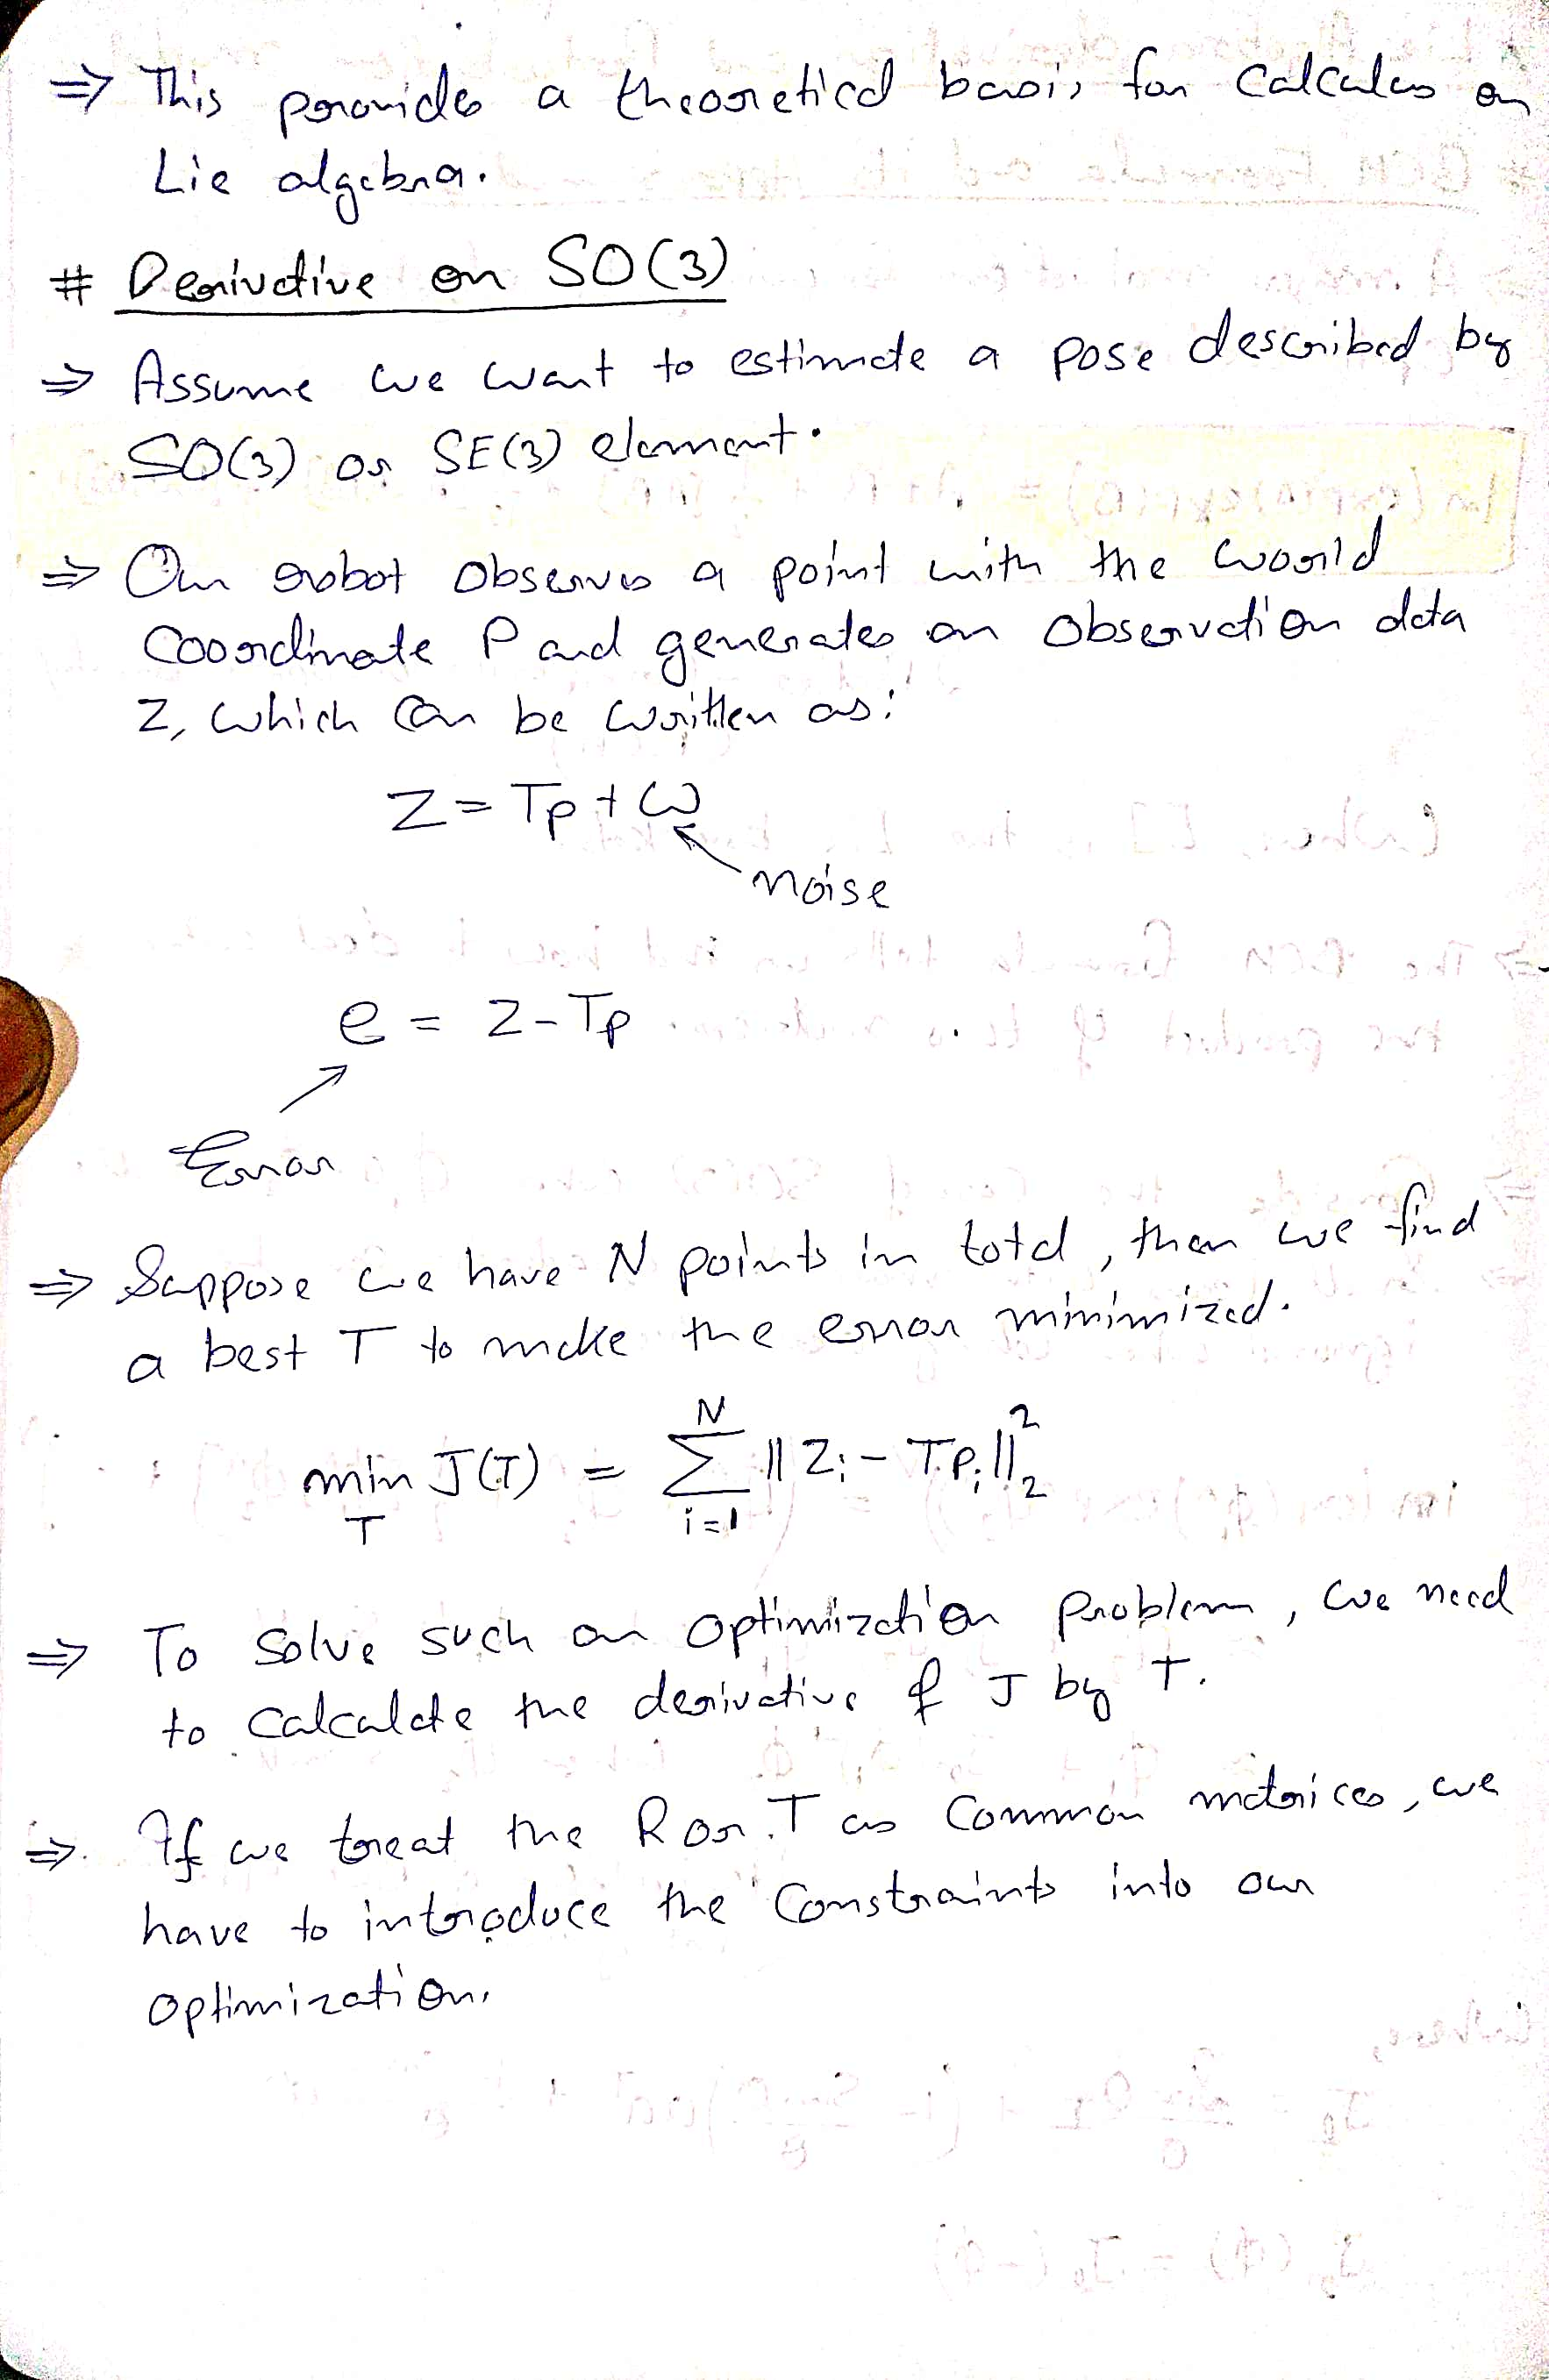 ⇒ This provides a theoretical basis for Calculus on
Lie algebra.
# Derivative on SO(3)
⇒ Assume we want to estimate a pose described by
SO(3) or SE(3) element.
⇒ Our robot observes a point with the world
Coordinate P and generates an observation data
z, which can be written as:
z = Tp + ω
noise
e = z - Tp
Error
⇒ Suppose we have N points in total, then we find
a best T to make the error minimized.
min_T J(T) = Σ_{i=1}^{N} ||z_i - Tp_i||_2^2
⇒ To solve such an optimization problem, we need
to calculate the derivative of J by T.
⇒ If we treat the R or T as common matrices, we
have to introduce the constraints into our
optimization.